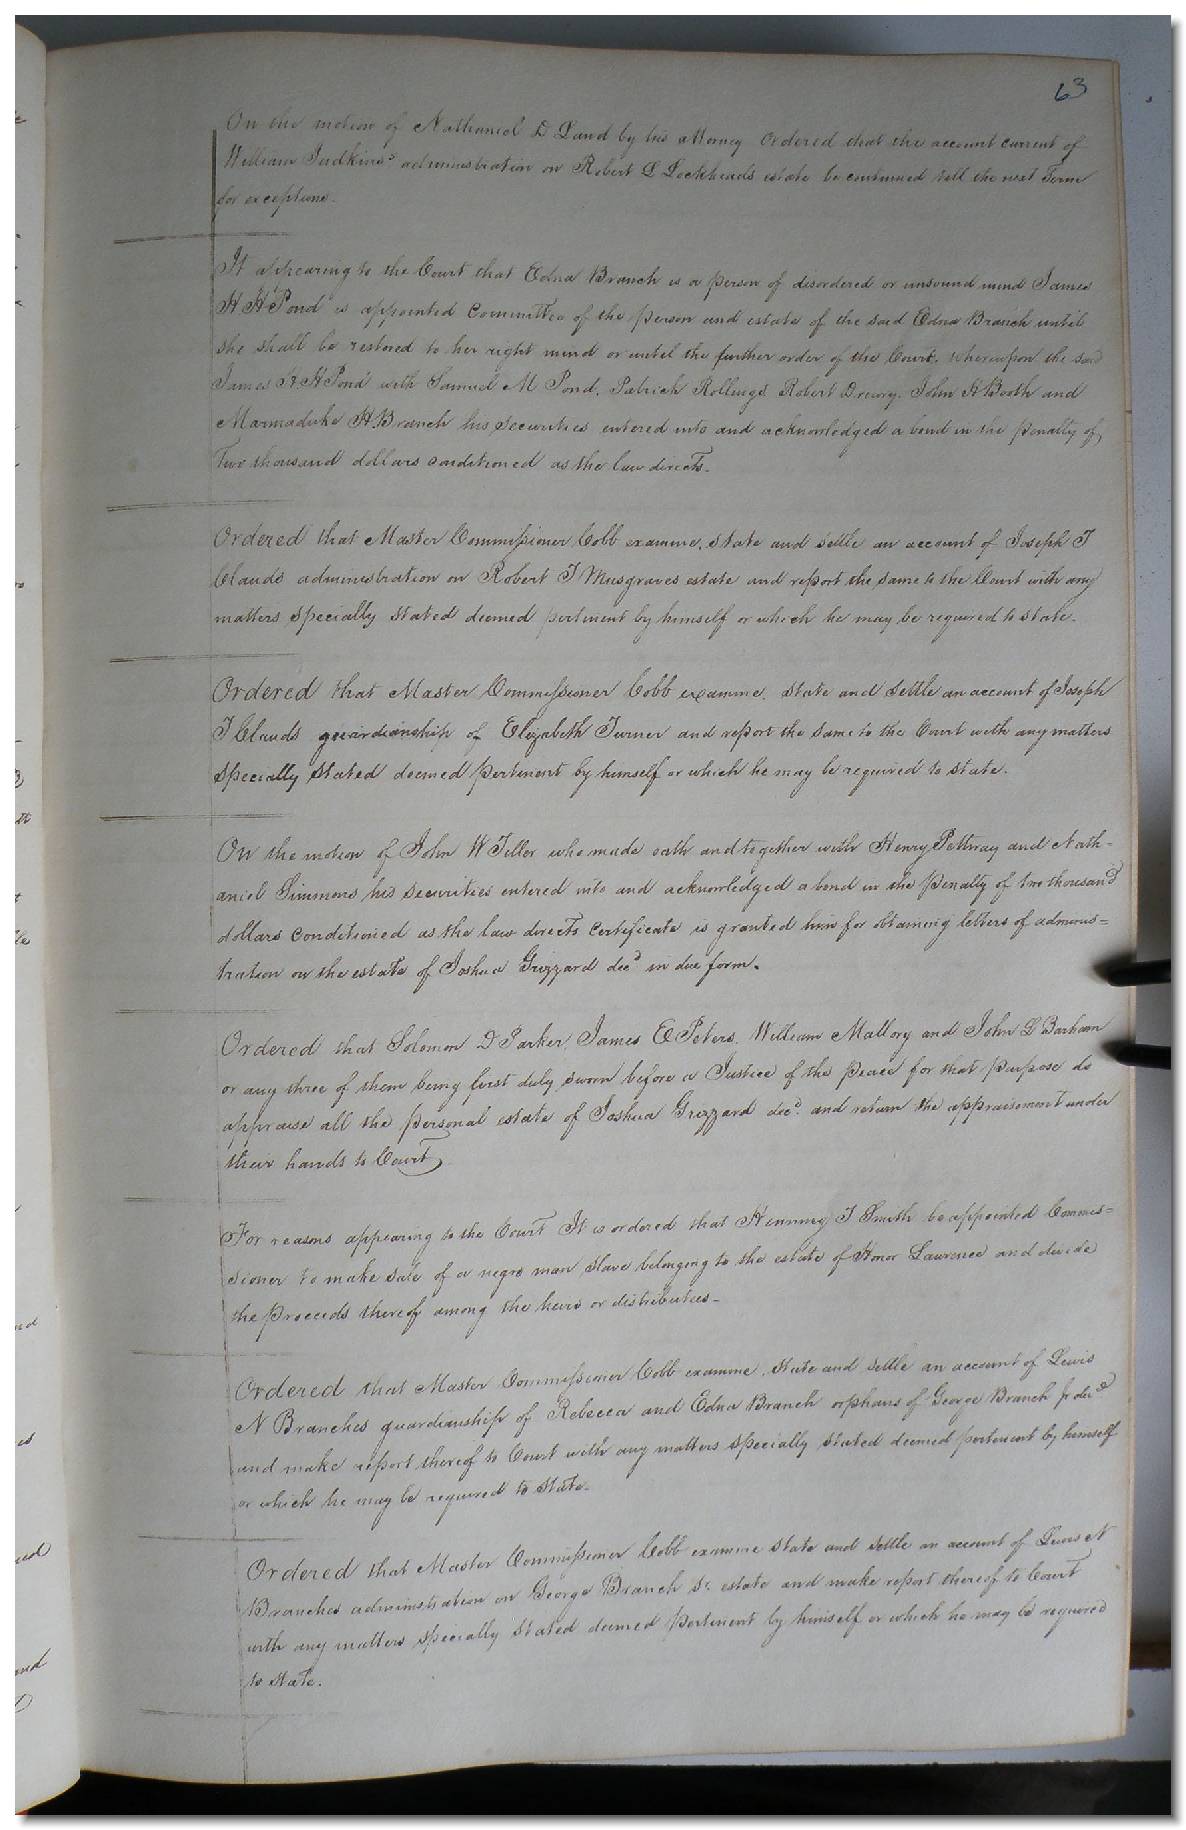 63
On the motion of Nathaniel D Land by his attorney Ordered that the account current of
William Judkins' administration on Robert L Lockheads estate be continued till the next Term
for exceptions.
It appearing to the Court that Edna Branch is a person of disordered or unsound mind James
A H Pond is appointed Committee of the person and estate of the said Edna Branch until
she shall be restored to her right mind or until the further order of the Court. whereupon the said
James A H Pond with Samuel M Pond, Patrick Rollings Robert Drewry, John A Booth and
Marmaduke H. Branch his securities entered into and acknowledged a bond in the penalty of
Two thousand dollars conditioned as the law directs.
Ordered that Master Commissioner Cobb examine, state and settle an account of Joseph T
Clauds administration on Robert T Musgraves estate and report the same to the Court with any
matters specially stated deemed pertinent by himself or which he may be required to state.
Ordered that Master Commissioner Cobb examine, state and settle an account of Joseph
T Clauds guardianship of Elizabeth Turner and report the same to the Court with any matters
specially stated deemed pertinent by himself or which he may be required to state.
On the motion of John W Teller who made oath and together with Henry Pettway and Nath-
aniel Simmons his securities entered into and acknowledged a bond in the penalty of two thousand
dollars conditioned as the law directs certificate is granted him for obtaining letters of adminis=
tration on the estate of Joshua Grizzard decd in due form.
Ordered that Solomon D Parker, James E Peters, William Mallory and John L Barham
or any three of them being first duly sworn before a Justice of the peace for that purpose do
appraise all the personal estate of Joshua Grizzard decd and return the appraisement under
their hands to Court
For reasons appearing to the Court It is ordered that Henning T Smith be appointed Commis=
sioner to make sale of a negro man slave belonging to the estate of Honor Lawrence and divide
the proceeds thereof among the heirs or distributees-
Ordered that Master Commissioner Cobb examine, state and settle an account of Lewis
N Branches guardianship of Rebecca and Edna Branch orphans of George Branch jr decd
and make report thereof to Court with any matters specially stated deemed pertinent by himself
or which he may be required to state.
Ordered that Master Commissioner Cobb examine state and settle an account of Lewis N
Branches administration on George Branch Sr. estate and make report thereof to Court
with any matters specially stated deemed pertinent by himself or which he may be required
to state.